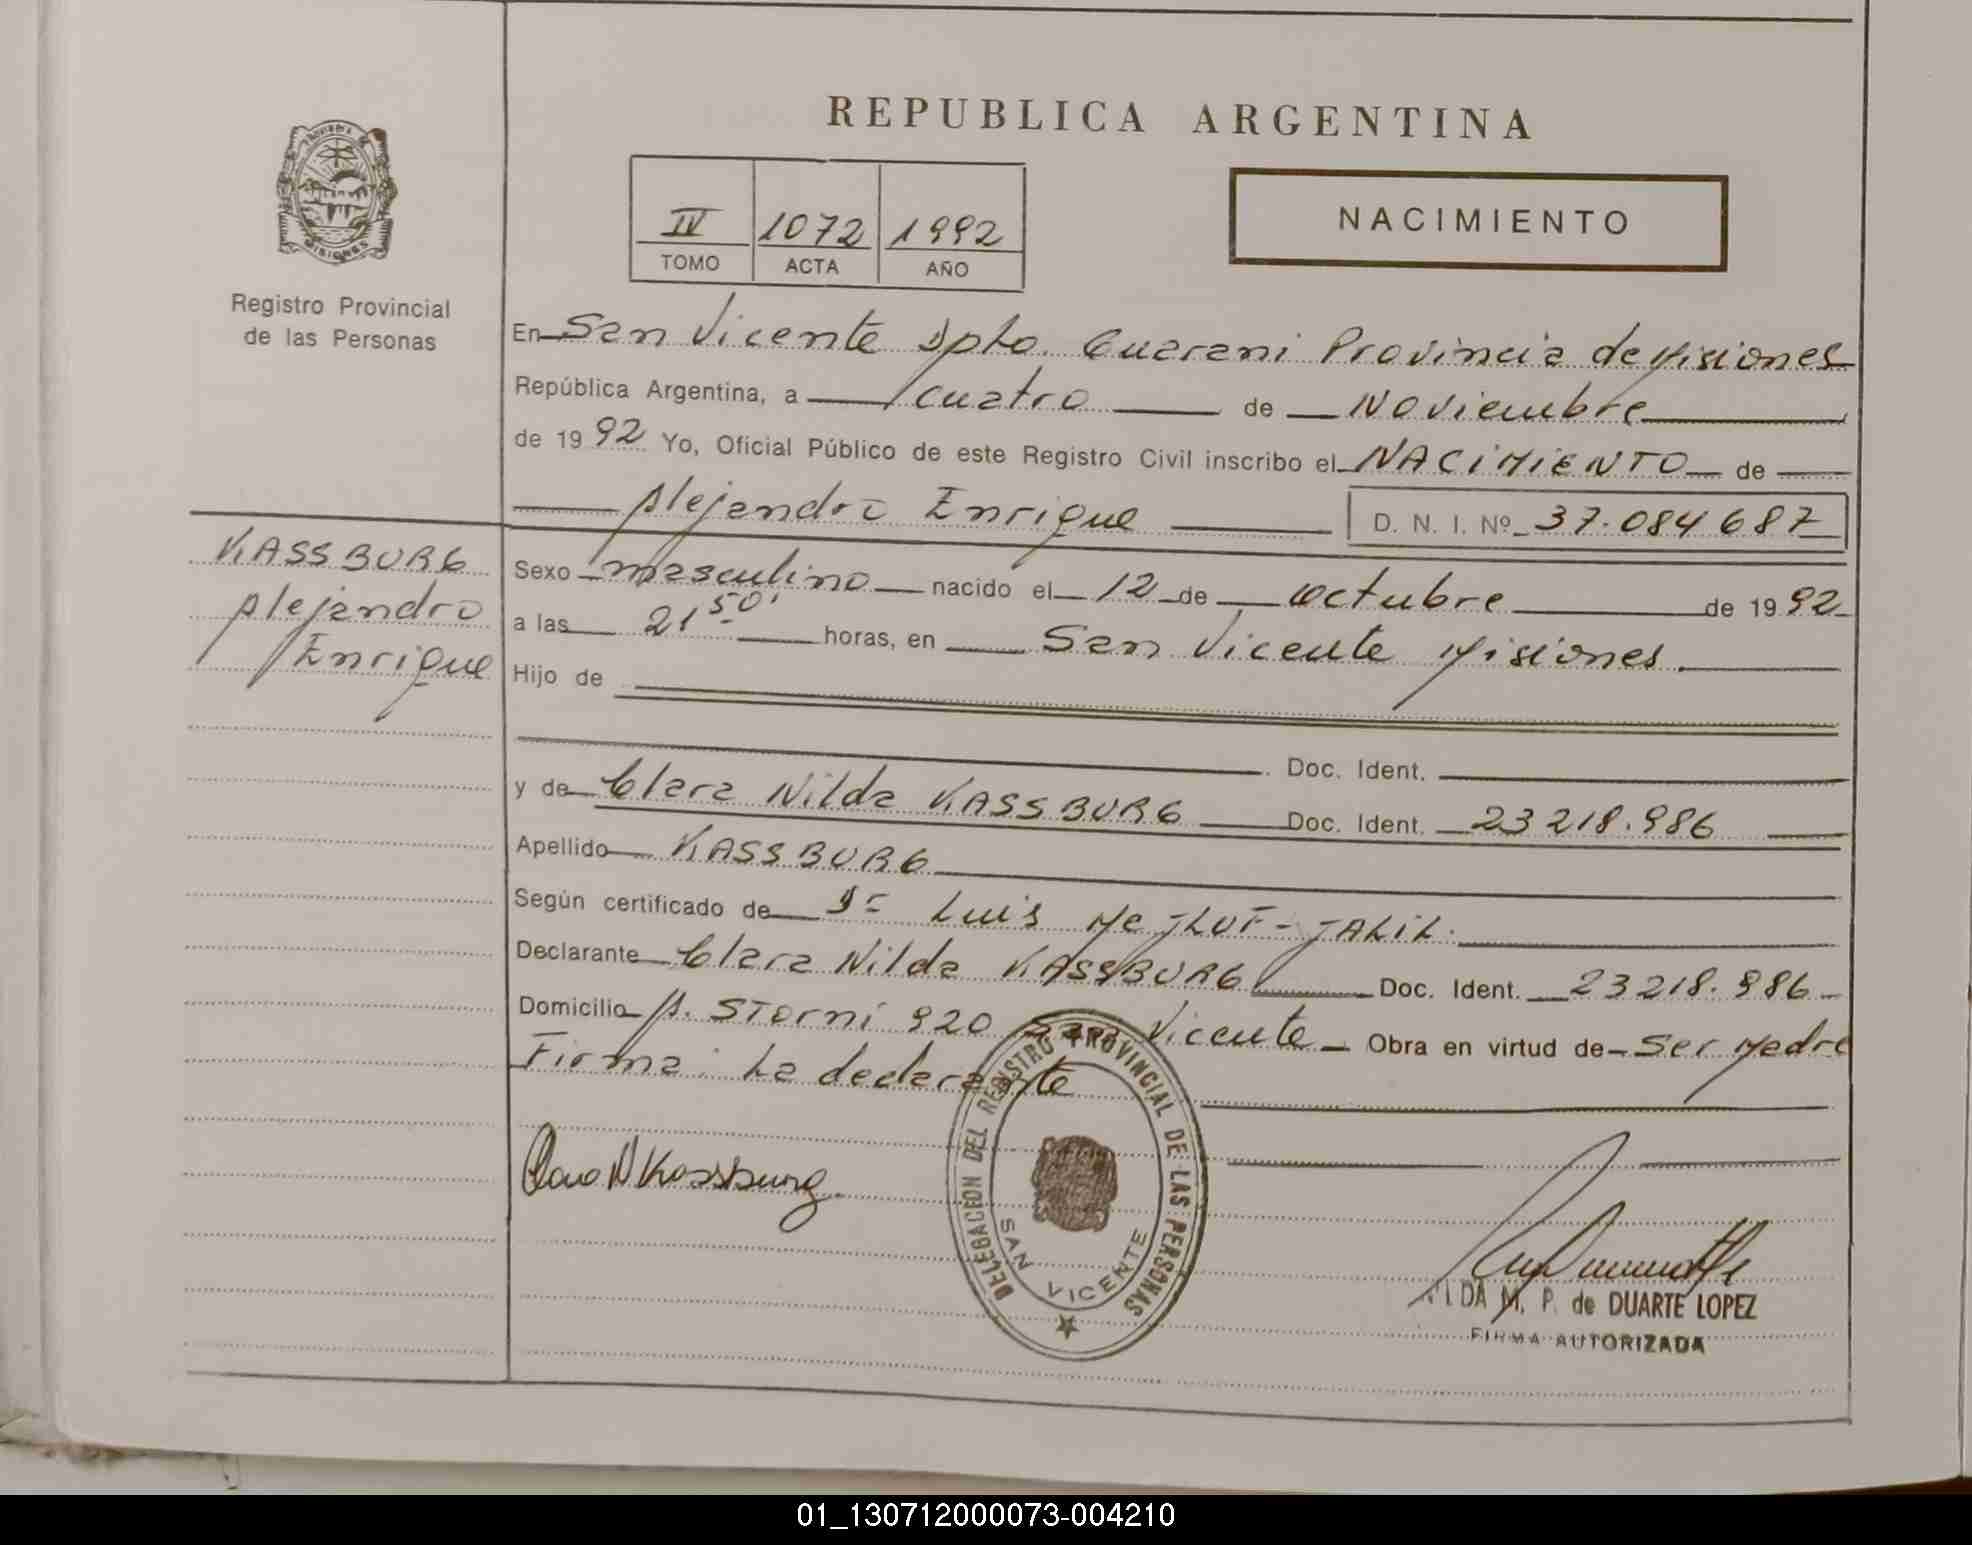 REPUBLICA ARGENTINA
IV 1072 1992
TOMO ACTA AÑO
NACIMIENTO
PROVINCIA DE MISIONES
Registro Provincial
de las Personas
En San Vicente Dpto. Guarani Provincia de Misiones
República Argentina, a cuatro de Noviembre
de 1992 Yo, Oficial Público de este Registro Civil inscribo el NACIMIENTO de
Alejandro Enrique D. N. I. Nº 37.084687
KASSBURG
Alejandro
Enrique
Sexo masculino nacido el 12 de octubre de 1992
a las 21 50' horas, en San Vicente Misiones.
Hijo de
Doc. Ident.
y de Clara Nilda KASSBURG Doc. Ident. 23218.986
Apellido KASSBURG
Según certificado de Dr Luis JALIL.
Declarante Clara Nilda KASSBURG Doc. Ident. 23218.986
Domicilio A. Storni 920 San Vicente Obra en virtud de Ser Madre
Firma: La declarante
Clara N Kassburg
DELEGACION DEL REGISTRO PROVINCIAL DE LAS PERSONAS
SAN VICENTE
M. P. de DUARTE LOPEZ
FIRMA AUTORIZADA
01_130712000073-004210